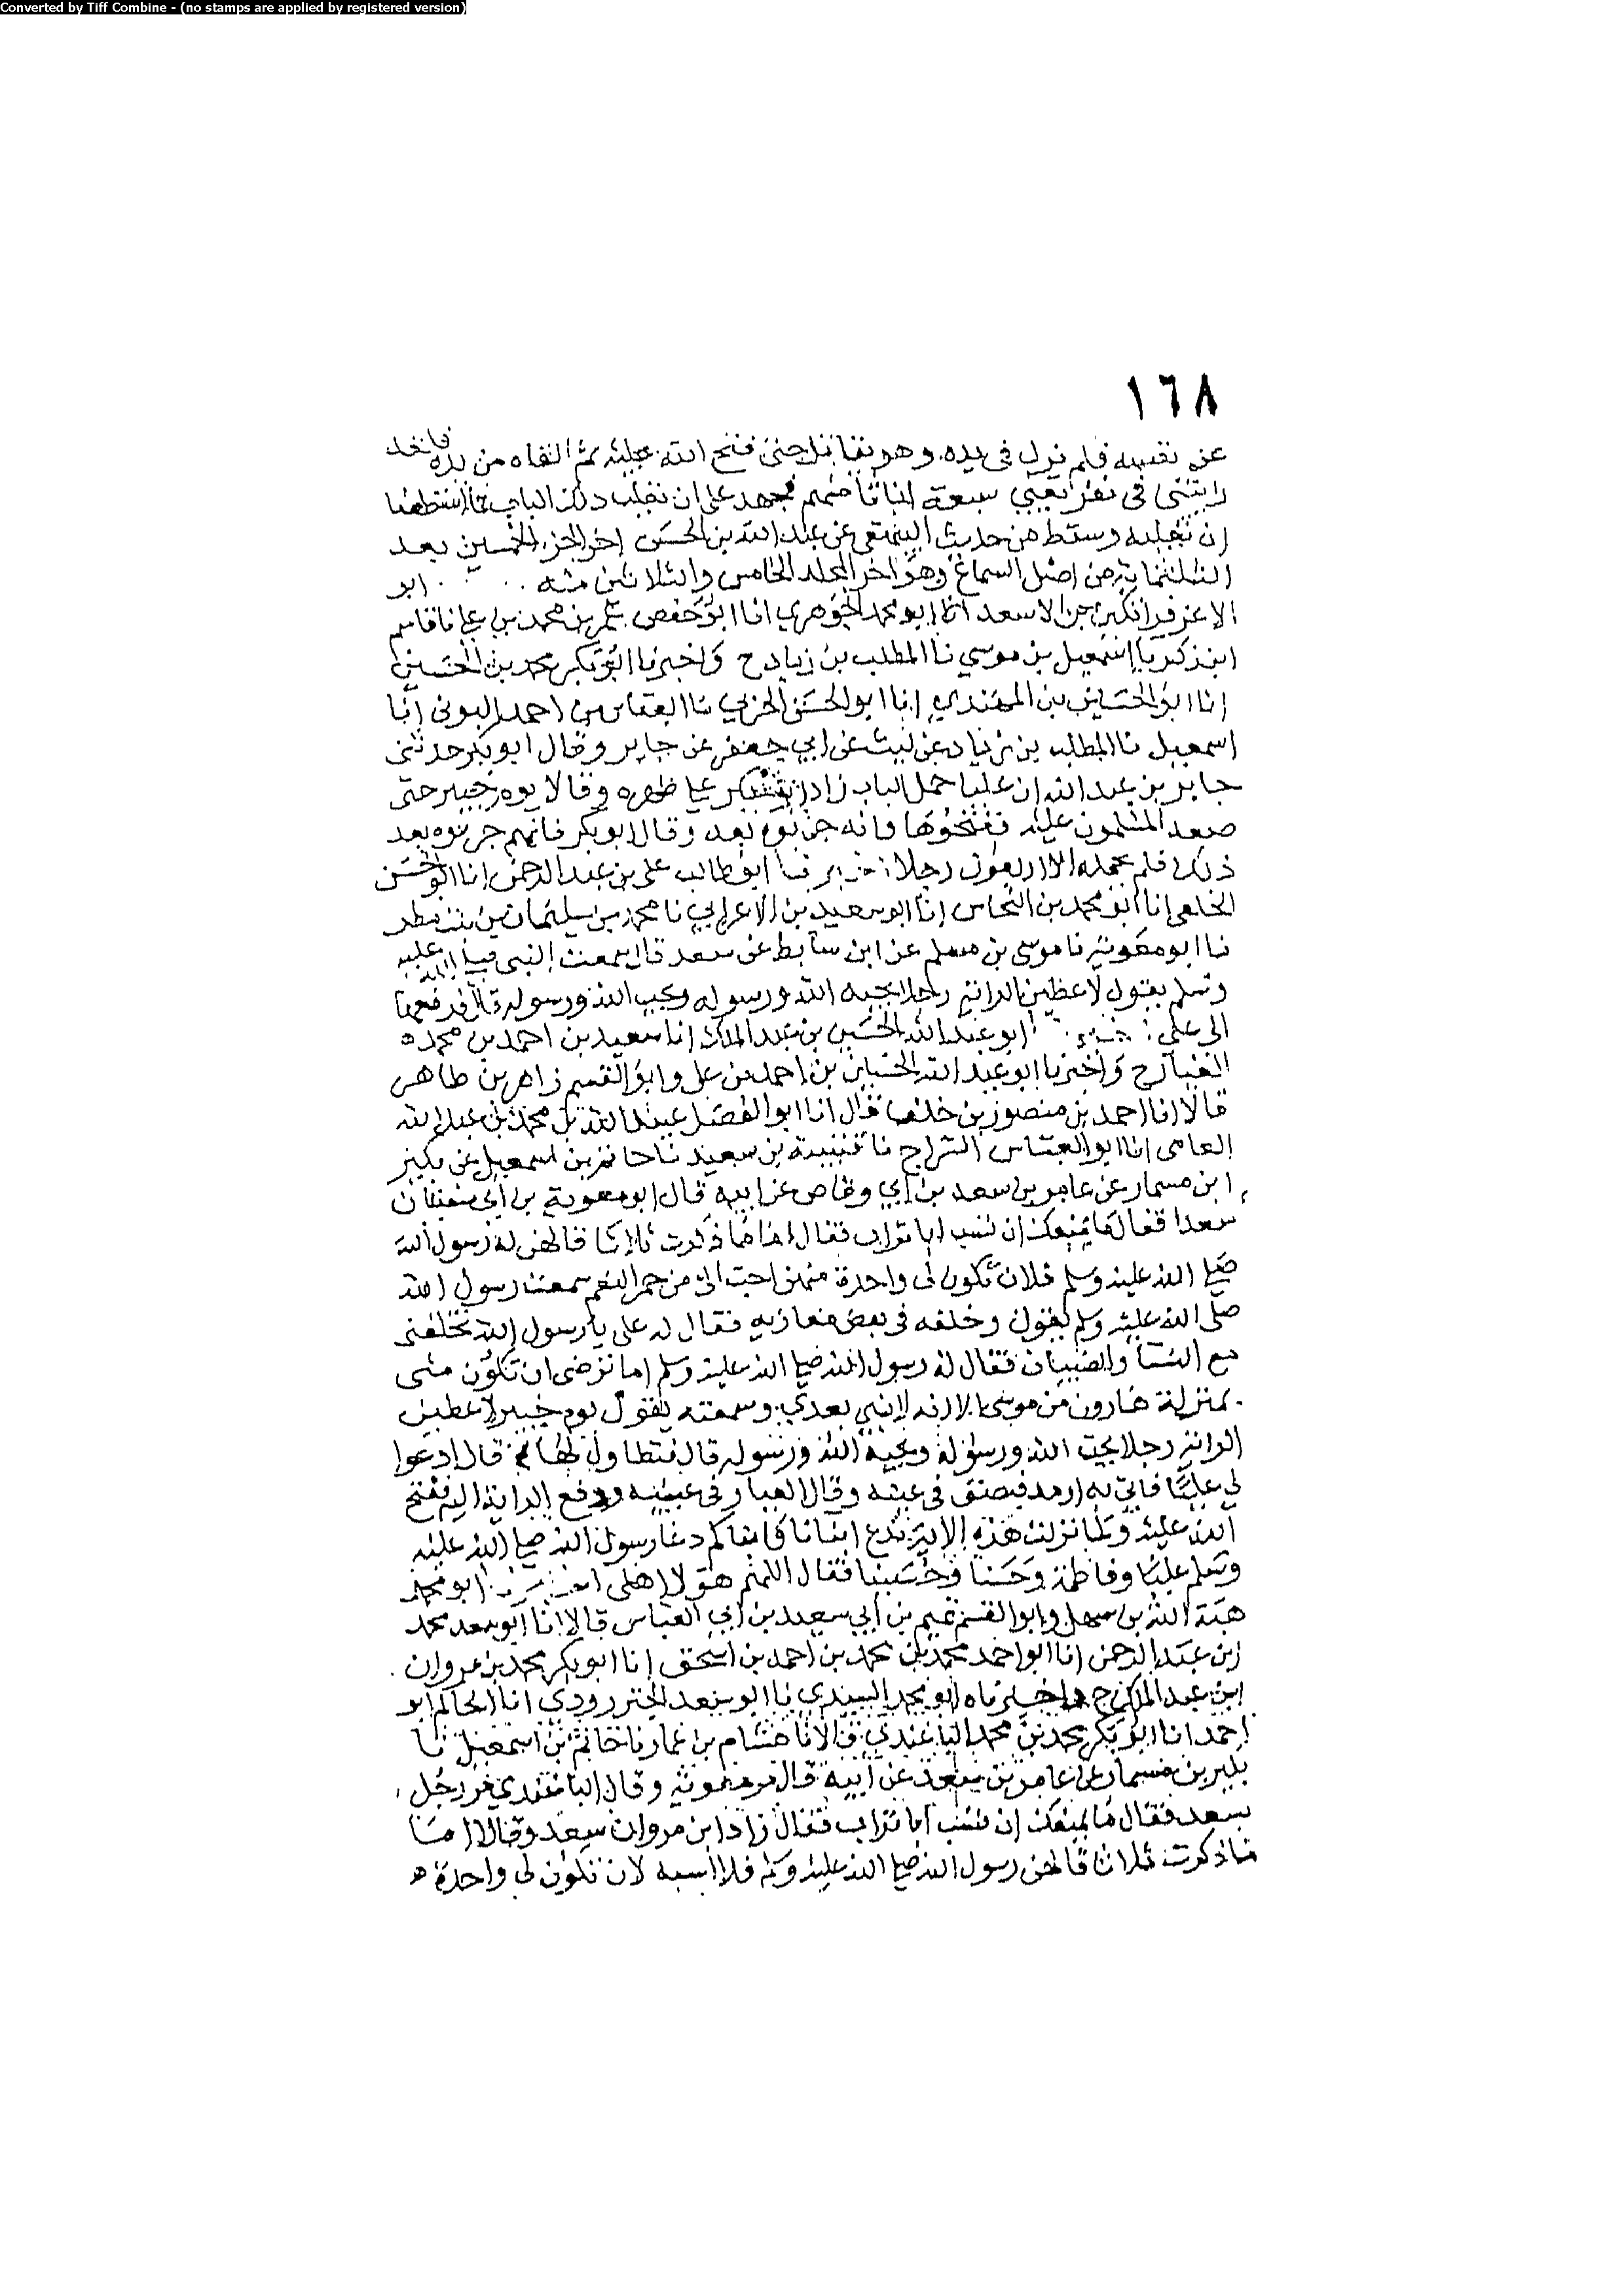 Converted by Tiff Combine - (no stamps are applied by registered version)
١٦٨
عن نفسه فلم تزل في يده وهو يقاتل حتى فتح الله عليه ثم القاه من يده فلقد
رايتني في نفر معي سبعة انا ثامنهم نجهد على ان نقلب ذلك الباب فما استطعنا
ان نقلبه وسقط من حديث البيهقي عن عبد الله بن الحسن اخر الجزء الخمسين بعد
الثلثمائة من اصل السماع وهو اخر المجلد الخامس والثلاثين منه ابو
الاعز قراتكين بن الاسعد انا ابو محمد الجوهري انا ابو حفص عمر بن محمد بن علي نا قاسم
ابن زكريا نا اسمعيل بن موسي نا المطلب بن زياد ح واخبرنا ابو بكر محمد بن الحسين
انا ابو الحسين بن المهتدي انا ابو الحسن الحربي نا العباس بن احمد البرتي انا
اسمعيل نا المطلب بن زياد عن ليث عن ابي جعفر عن جابر وقال ابو بكر حدثني
جابر بن عبد الله ان عليا حمل الباب زاد على ظهره وقالا يوم خيبر حتى
صعد المسلمون عليه ففتحوها وانه بعد وقال ابو بكر فانهم جربوه بعد
ذلك فلم يحمله الا اربعون رجلا ابو طالب على بن عبد الرحمن انا ابو الحسن
الخلعي انا ابو محمد بن النحاس انا ابو سعيد بن الاعرابي نا محمد بن سليمان بن بنت مطر
نا ابو معوية نا موسى بن مسلم عن ابن سابط عن سعد قال سمعت النبي صلى الله عليه
وسلم يقول لاعطين الراية رجلا يحبه الله ورسوله ويحب الله ورسوله قال فدفعها
الى علي ابو عبد الله الحسين بن عبد الملك انا سعيد بن احمد بن محمد
العيار ح واخبرنا ابو عبد الله الحسين بن احمد بن علي وابو القسم زاهر بن طاهر
قالا انا احمد بن منصور بن خلف قال انا ابو الفضل عبيد الله بن محمد بن عبد الله
العامي انا ابو العباس السراج نا قتيبة بن سعيد نا حاتم بن اسمعيل عن بكير
ابن مسمار عن عامر بن سعد بن ابي وقاص عن ابيه قال امر معوية بن ابي سفيان
سعدا فقال ما يمنعك ان تسب ابا تراب فقال اما ما ذكرت ثلاثا قالهن له رسول الله
صلى الله عليه وسلم فلان تكون لي واحدة منهن احب الى من حمر النعم سمعت رسول الله
صلى الله عليه وسلم يقول وخلفه في بعض مغازيه فقال له على يا رسول الله تخلفني
مع النسا والصبيان فقال له رسول الله صلى الله عليه وسلم اما ترضى ان تكون منى
بمنزلة هارون من موسى الا انه لا نبي بعدي وسمعته يقول يوم خيبر لاعطين
الراية رجلا يحب الله ورسوله ويحبه الله ورسوله قال فتطاولنا لها قال ادعوا
لي عليا فاتي به ارمد فبصق في عينه وقال العيار في عينيه ودفع الراية اليه ففتح
الله عليه ولما نزلت هذه الاية ندع ابنانا وابناكم دعا رسول الله صلى الله عليه
وسلم عليا وفاطمة وحسنا وحسينا فقال اللهم هولا اهلى ابو محمد
هبة الله بن سهل وابو القسم تميم بن ابي سعيد بن ابي العباس قالا انا ابو سعد محمد
ابن عبد الرحمن انا ابو احمد محمد بن محمد بن احمد بن اسحق انا ابو بكر محمد بن مروان
ابن عبد الملك ح واخبرناه ابو محمد السيدي نا ابو سعد الجنزرودي انا الحاكم ابو
احمد انا ابو بكر محمد بن محمد الباغندي قالا نا هشام بن عمار نا حاتم بن اسمعيل نا
بكير بن مسمار عن عامر بن سعد عن ابيه قال معوية وقال الباغندي رجل
بسعد فقال ما يمنعك ان تسب ابا تراب فقال زاد ابن مروان سعد وقالا اما
ما ذكرت ثلاثا قالهن رسول الله صلى الله عليه وسلم فلا اسبه لان تكون لي واحدة